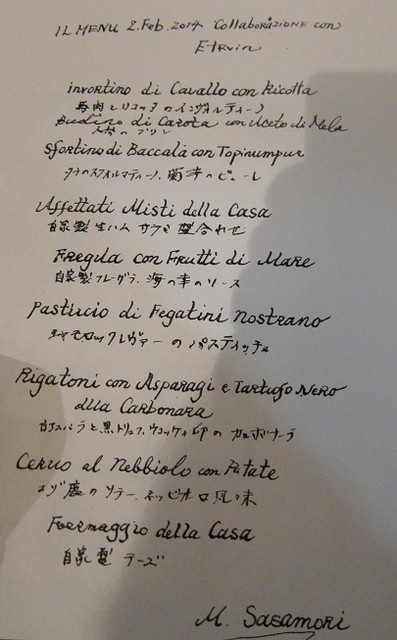 IL MENU 2.Feb.2014. Collaborazione con
Etrvin
invortino di Cavallo con Ricotta
馬肉とリコッタのインヴォルティーノ
Budino di Carota con Aceto di Mela
人参のプリン
Sfortino di Baccala con Topinumpur
タラのスフォルマティーノ、菊芋のピューレ
Affettati Misti della Casa
自家製生ハム サラミ 盛合わせ
Fregula con Frutti di Mare
自家製フレグラ、海の幸のソース
Pasticcio di Fegatini nostrano
レヴァーのパスティッチョ
Rigatoni con Asparagi e Tartufo Nero
alla Carbonara
と黒トリュフ、卵のカルボナーラ
Cervo al Nebbiolo con Patate
エゾ鹿のソテー、ネッビオーロ風味
Formaggio della Casa
自家製 チーズ
M. Sasamori